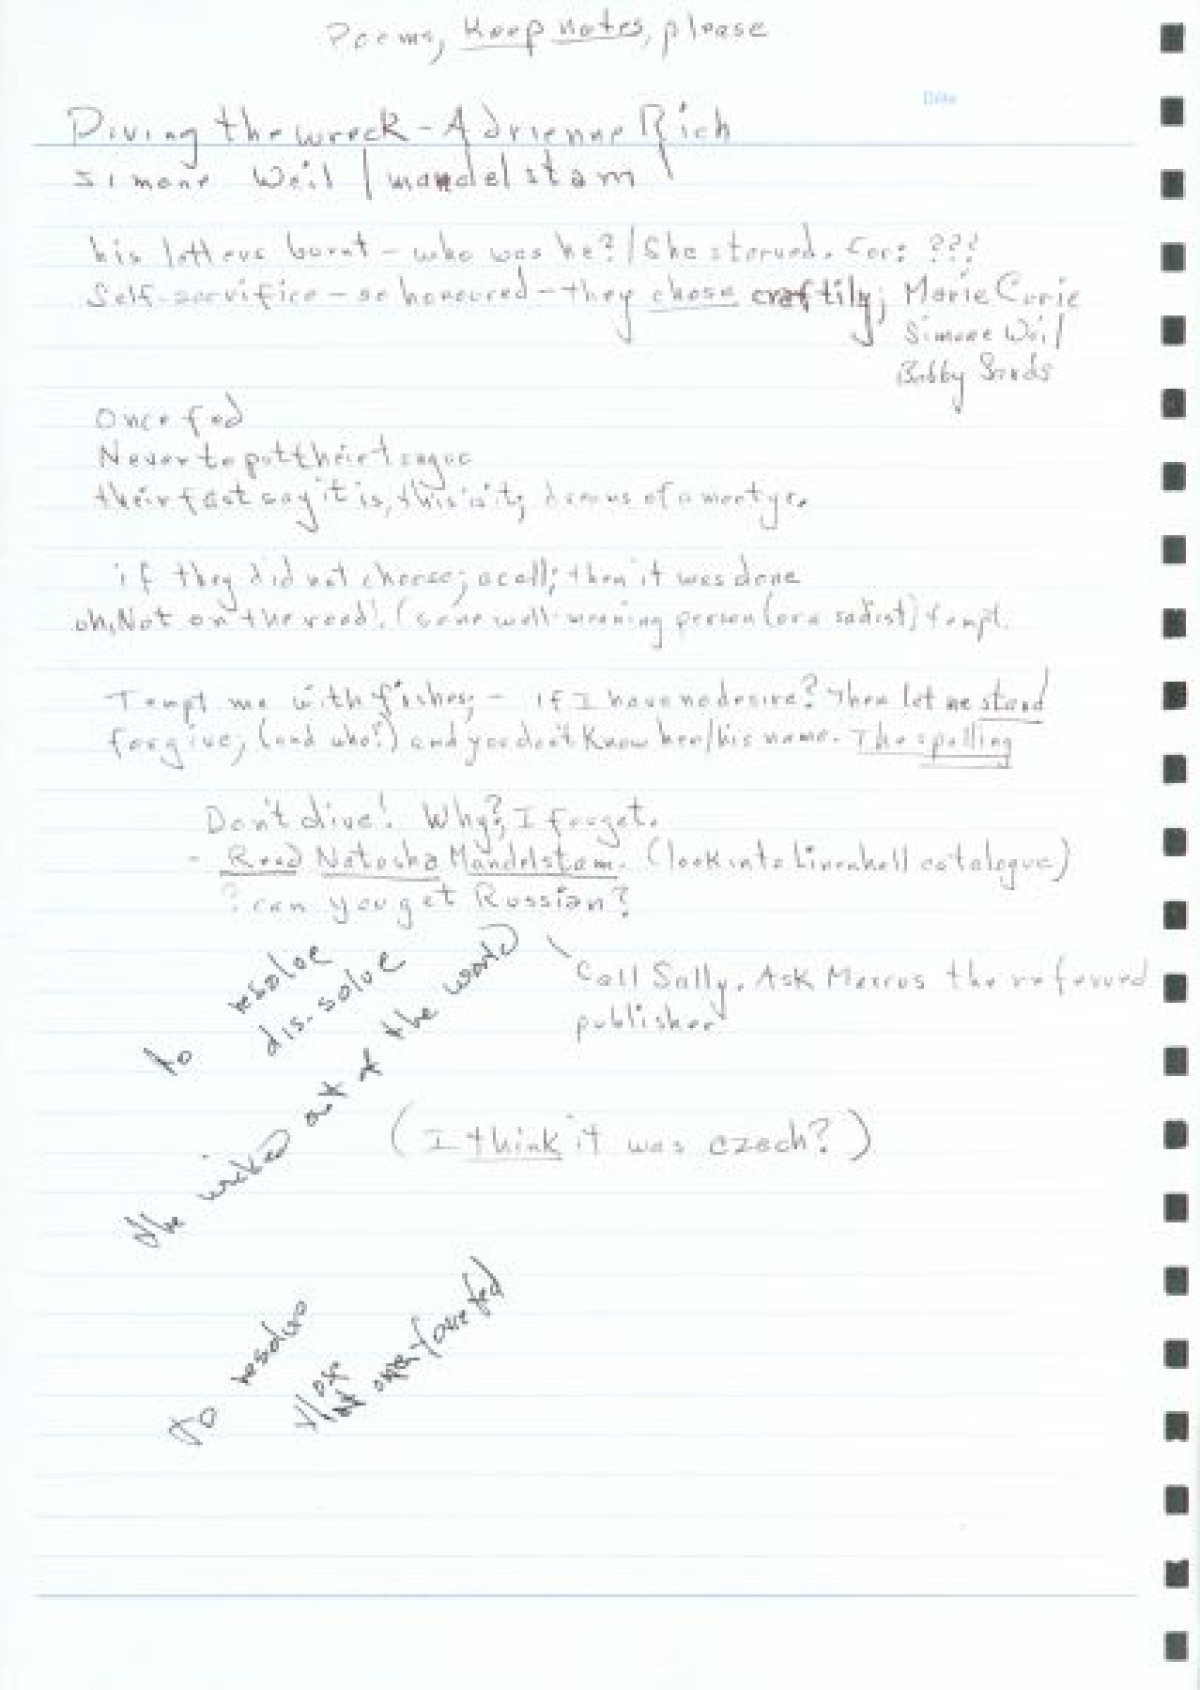 Poems, Keep notes, please
Date
Diving the wreck - Adrienne Rich
Simone Weil / mandelstam
his letters burnt - who was he? / She starved. for: ???
Self-sacrifice - so honoured - they chose craftily; Marie Curie
Simone Weil
Bobby Sands
Once fed
Never to put their tongue
their fast say it is, this is it; dreams of a martyr.
if they did not choose; a call; then it was done
oh, Not on the road! (some well-meaning person (or a sadist) tempt.
Tempt me with fishes; - if I have no desire? Then let me stand
forgive; (and who?) and you don't know her/his name. The spelling
Don't dive! Why?, I forget.
- Read Natasha Mandelstam. (look into catalogue)
? can you get Russian?
Call Sally. Ask Marcus the referred
publisher
to resolve
dis-solve
the wicked out of the world
(I think it was czech?)
to resolve
or
that once-force fed